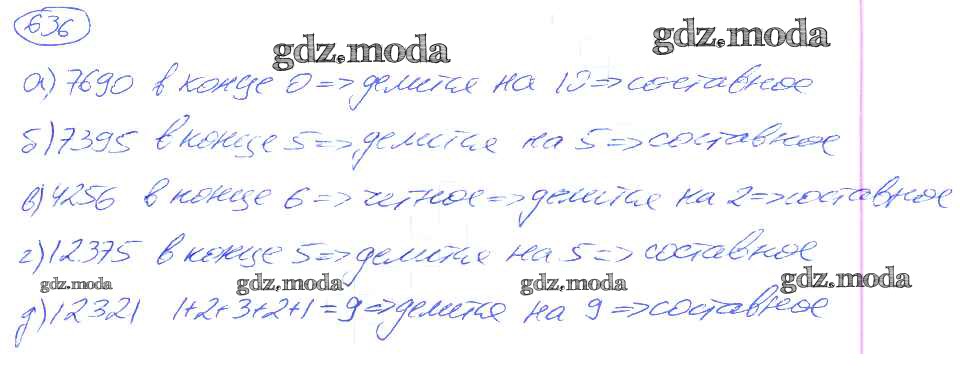 636
gdz.moda gdz.moda
а) 7690 в конце 0 => делится на 10 => составное
б) 7395 в конце 5 => делится на 5 => составное
в) 4256 в конце 6 => четное => делится на 2 => составное
г) 12375 в конце 5 => делится на 5 => составное
gdz.moda gdz.moda gdz.moda gdz.moda
д) 12321 1+2+3+2+1 = 9 => делится на 9 => составное